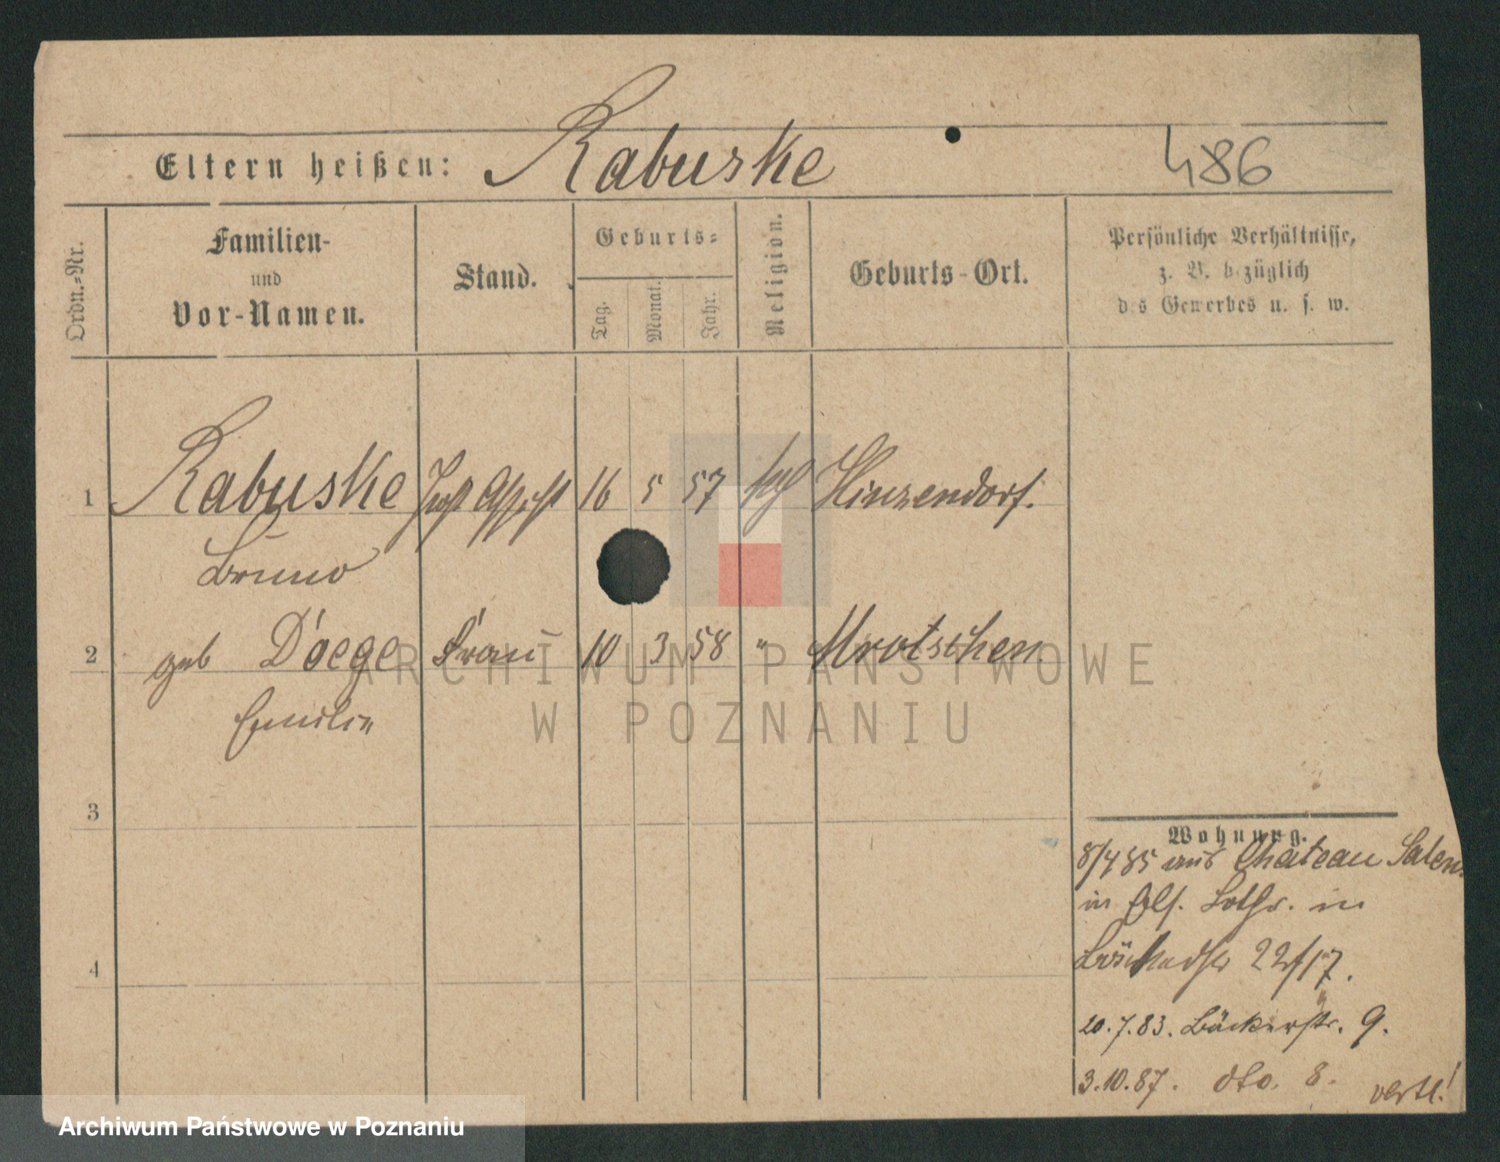 Eltern heißen: Rabuske 486
Ordn.-Nr. Familien- und Vor-Namen. Stand. Geburts- Tag. Monat. Jahr. Religion. Geburts-Ort. Persönliche Verhältnisse, z. B. bezüglich des Gewerbes u. s. w.
1 Rabuske 16 5 57 Hinzendorf.
Bruno
2 geb Doege Frau 10 3 58 " Mrotschen
Emilie
3
4
Wohnung.
8/4 85 aus Chateau Salens
in Els. Lothr. in
22/17.
20.7.83. Bäckerstr. 9.
3.10.87. dto. 8. verte!
ARCHIWUM PAŃSTWOWE
W POZNANIU
Archiwum Państwowe w Poznaniu